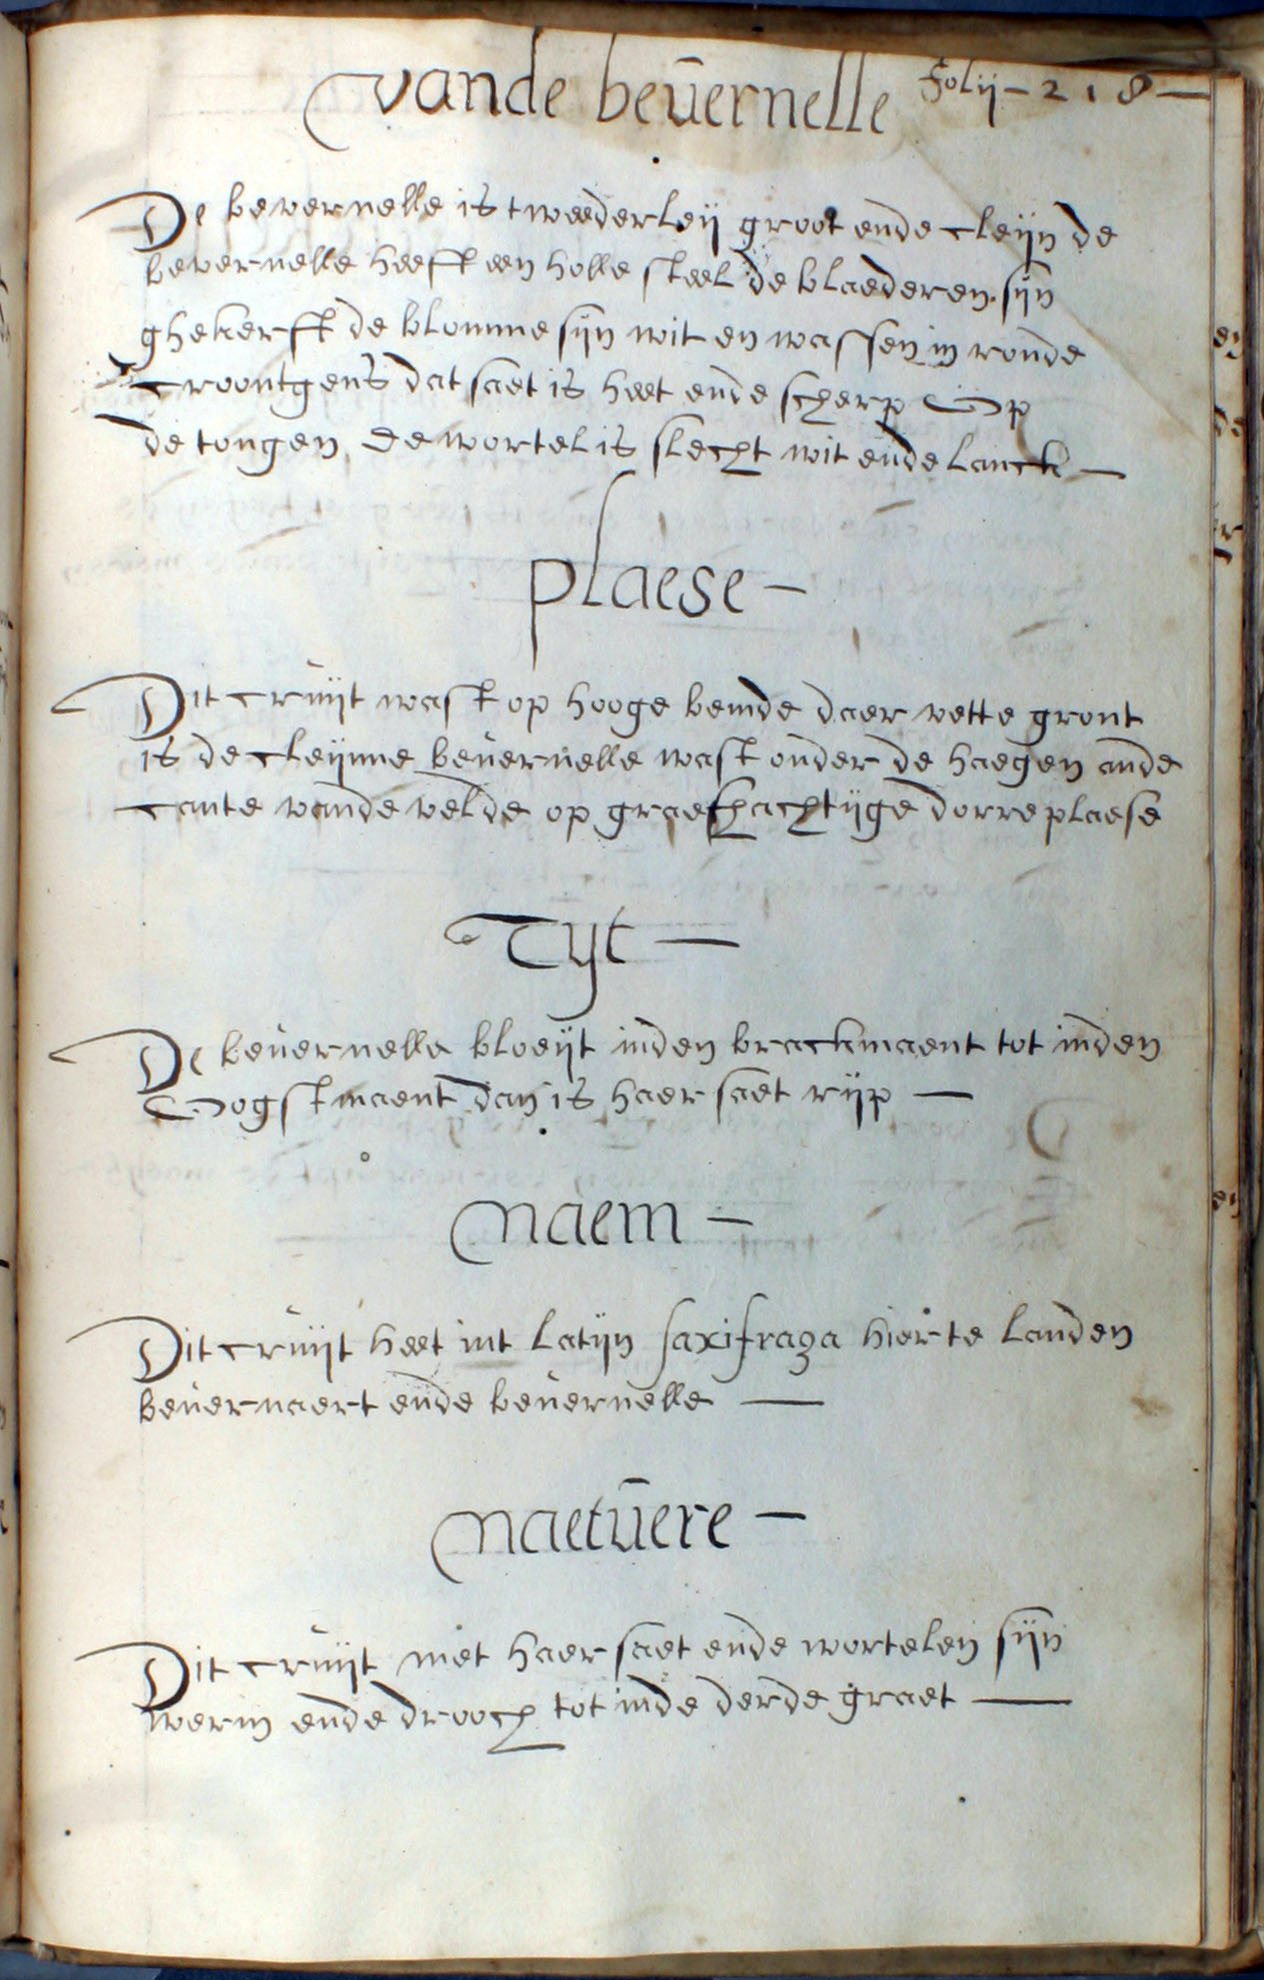 vande beuernelle folij - 218 -
De bevernelle is tweederleij groot ende cleijn de
bevernelle heeft een holle steel de blaederen sijn
ghekerft de blomme sijn wit en wassen in ronde
croontgens dat saet is heet ende scherp op
de tongen, de wortel is slecht wit ende lanck -
plaese -
Dit cruijt wast op hooge bemde daer vette gront
is de cleijnne beuernelle wast onder de haegen ande
cante vande velde op graeshachtijge dorre plaese
Tijt -
De beuernelle bloeijt inden brackmaent tot inden
Oogstmaent dan is haer saet rijp -
naem -
Dit cruijt heet int latijn saxifraga hier te landen
beuernaert ende beuernelle -
naetuere -
Dit cruijt met haer saet ende wortelen sijn
werm ende drooch tot inde derde graet -